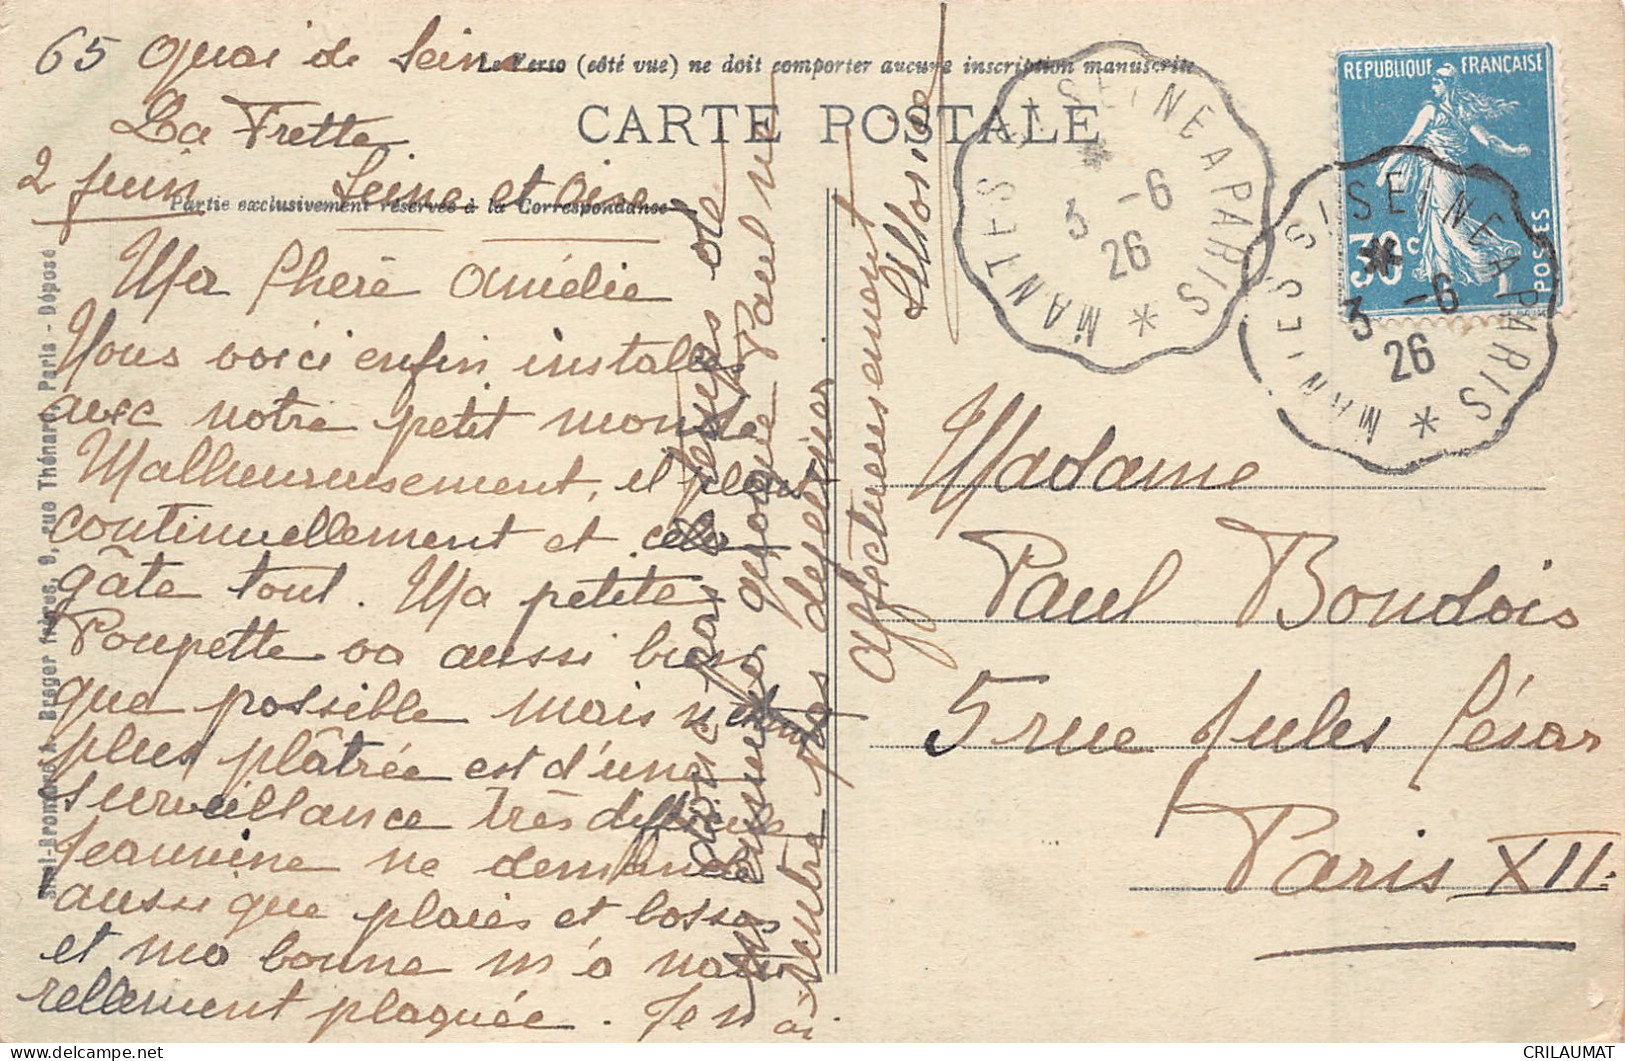 65 quai de Seine
La Frette
2 juin Seine et Oise
Le Verso (côté vue) ne doit comporter aucune inscription manuscrite
CARTE POSTALE
Partie exclusivement réservée à la Correspondance
Ma Chère Amélie
Nous voici enfin installés
avec notre petit monde
Malheureusement, il pleut
continuellement et cela
gâte tout. Ma petite
Poupette va aussi bien
que possible mais n'étant
plus plâtrée est d'une
surveillance très difficile
Jeannine ne demande
aussi que plaies et bosses
et ma bonne m'a natu
rellement plaquée. Je n'ai
donc pas le temps de
m'ennuyer quoique Paul ne
rentre pas
Affectueusement
Madame
Paul Boudois
5 rue Jules César
Paris XII.
RÉPUBLIQUE FRANÇAISE
30 c
POSTES
MANTES S/ SEINE A PARIS
3 -6
26
MANTES S/ SEINE A PARIS
3 -6
26
A. Breger frères, 9, rue Thénard, Paris - Déposé
CRILAUMAT